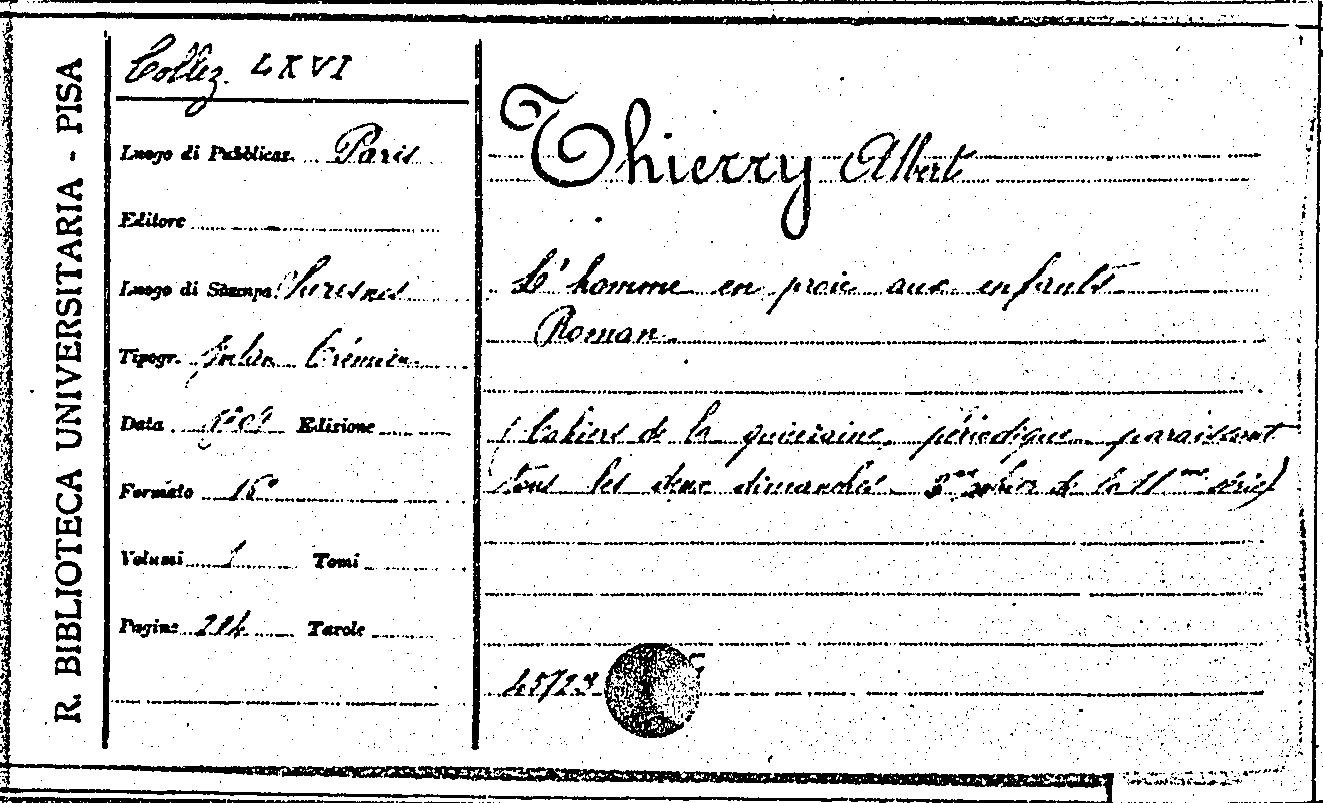 R. BIBLIOTECA UNIVERSITARIA - PISA
Collez. LXVI
Luogo di Pubblicaz. Paris
Editore
Luogo di Stampa Suresnes
Tipogr. Julien Crémieu
Data 1909 Edizione
Formato 16°
Volumi 1 Tomi
Pagine Tavole
Thierry Albert
L'homme en proie aux enfants
Roman.
(Cahiers de la quinzaine, périodique paraissant
tous les deux dimanches. 3me cahier de la 11me série)
45723